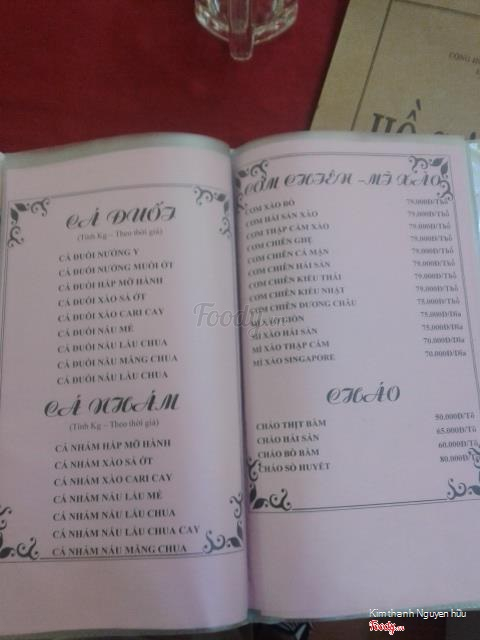 CÁ ĐUỐI
(Tính Kg – Theo thời giá)
CÁ ĐUỐI NƯỚNG Y
CÁ ĐUỐI NƯỚNG MUỐI ỚT
CÁ ĐUỐI HẤP MỠ HÀNH
CÁ ĐUỐI XÀO SẢ ỚT
CÁ ĐUỐI XÀO CARI CAY
CÁ ĐUỐI NẤU MẺ
CÁ ĐUỐI NẤU LẨU CHUA
CÁ ĐUỐI NẤU MĂNG CHUA
CÁ ĐUỐI NẤU LẨU CHUA
CÁ NHÁM
(Tính Kg – Theo thời giá)
CÁ NHÁM HẤP MỠ HÀNH
CÁ NHÁM XÀO SẢ ỚT
CÁ NHÁM XÀO CARI CAY
CÁ NHÁM NẤU LẨU MẺ
CÁ NHÁM NẤU LẨU CHUA
CÁ NHÁM NẤU LẨU CHUA CAY
CÁ NHÁM NẤU MĂNG CHUA
CƠM CHIÊN – MÌ XÀO
CƠM XÀO BÒ 79.000Đ/Thố
CƠM HẢI SẢN XÀO 79.000Đ/Thố
CƠM THẬP CẨM XÀO 79.000Đ/Thố
CƠM CHIÊN GHẸ 79.000Đ/Thố
CƠM CHIÊN CÁ MẶN 79.000Đ/Thố
CƠM CHIÊN HẢI SẢN 79.000Đ/Thố
CƠM CHIÊN KIỂU THÁI 79.000Đ/Thố
CƠM CHIÊN KIỂU NHẬT 79.000Đ/Thố
CƠM CHIÊN DƯƠNG CHÂU 75.000Đ/Thố
MÌ XÀO GIÒN 75.000Đ/Dĩa
MÌ XÀO HẢI SẢN 75.000Đ/Dĩa
MÌ XÀO THẬP CẨM 70.000Đ/Dĩa
MÌ XÀO SINGAPORE 70.000Đ/Dĩa
CHÁO
CHÁO THỊT BẰM 50.000Đ/Tô
CHÁO HẢI SẢN 65.000Đ/Tô
CHÁO BÒ BẰM 60.000Đ/Tô
CHÁO SÒ HUYẾT 80.000Đ/Tô
Foody.vn
Kimthanh Nguyen hữu
Foody.vn